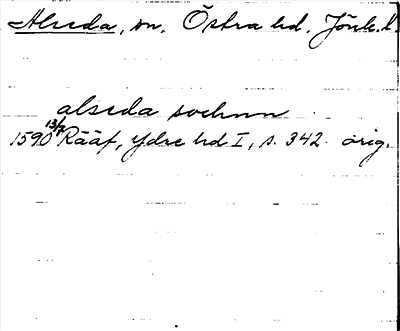 Alseda, sn. Östra hd. Jönk. l.
alseda sochnn
1590 13/7 Rääf, Ydre hd I, s. 342 orig.